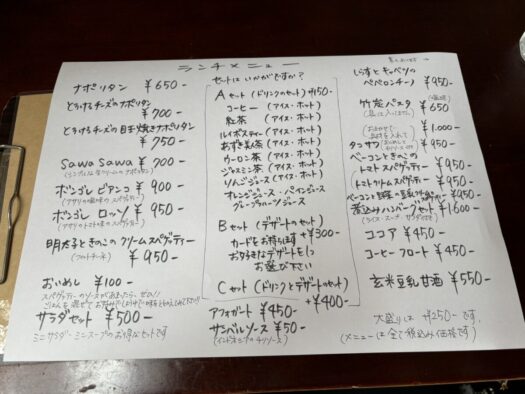 ランチメニュー
ナポリタン ¥650-
とろけるチーズのナポリタン
¥700-
とろけるチーズの目玉焼きナポリタン
¥750-
sawa sawa ¥700-
ボンゴレ ビアンコ ¥900-
(アサリの塩味のスパゲティー)
ボンゴレ ロッソ ¥950-
(アサリのトマト味のスパゲティー)
明太子ときのこのクリームスパゲッティー
¥950-
おいめし ¥100-
スパゲッティーのソースがあまったら、ぜひ!!
サラダセット ¥500-
ミニサラダ・ミニスープのお得なセットです
セットはいかがですか?
Aセット(ドリンクのセット)+¥150-
コーヒー (アイス・ホット)
紅茶 (アイス・ホット)
ルイボスティー(アイス・ホット)
あずき美人茶(アイス・ホット)
ウーロン茶(アイス・ホット)
ジャスミン茶(アイス・ホット)
りんごジュース(アイス・ホット)
オレンジジュース・パインジュース
グレープフルーツジュース
Bセット(デザートのセット)
カードをお持ちします +¥300-
お好きなデザートを1つ
お選び下さい
Cセット(ドリンクとデザートのセット)
+¥400-
アフォガート ¥450-
サンバルソース ¥50-
(インドネシアのチリソース)
しらすとキャベツの
ペペロンチーノ ¥950-
竹炭パスタ ¥650
¥1,000-
タコサラ
¥950-
ベーコンときのこの
トマトスパゲッティー ¥950-
トマトクリームスパゲッティー ¥950-
¥950-
煮込みハンバーグセット ¥1,600-
(ライス・スープ・サラダ付き)
ココア ¥450-
コーヒーフロート ¥450-
玄米豆乳甘酒 ¥550-
大盛りは +¥250-です
(メニューは全て税込み価格です)